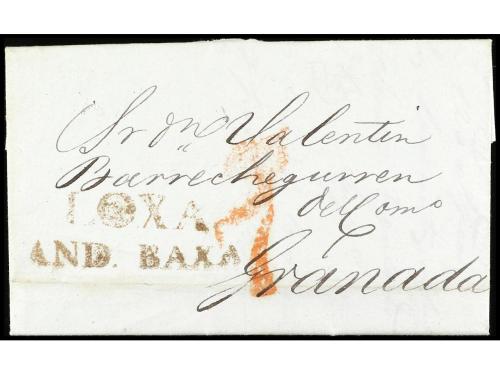 Sr. dn. Valentin
Barrecheguren
del Como
LOXA
AND. BAXA
Granada